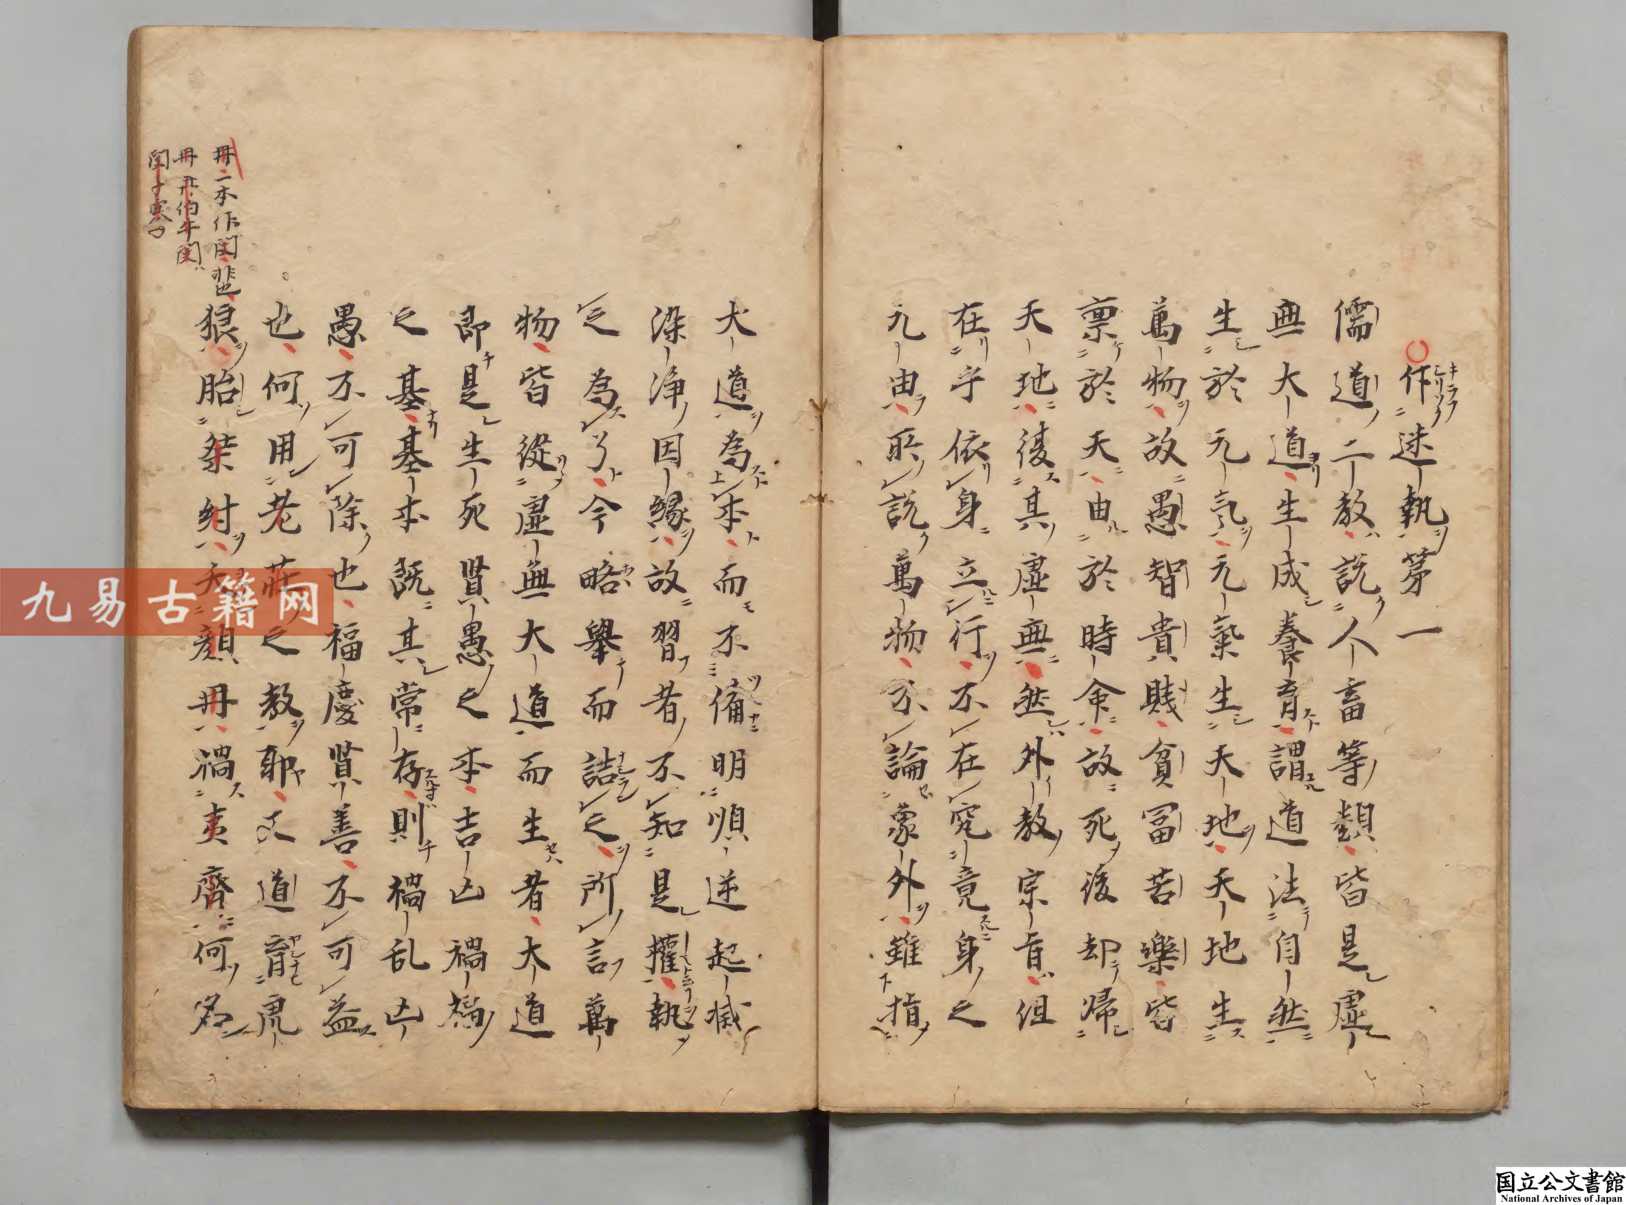 作迷執第一
儒道二教說人畜等類皆是虛
無大道生成養育謂道法自然
生於元気元氣生天地天地生
萬物故愚智貴賤貧冨苦樂皆
禀於天由於時命故死後却歸
天地復其虛無然外教宗旨但
在乎依身立行不在究竟身之
元由所說萬物不論象外雖指
大道為本而不備明順逆起滅
染淨因緣故習者不知是權執
之為了今略舉而詰之所言萬
物皆從虛無大道而生者大道
即是生死賢愚之本吉凶禍福
之基基本既其常存則禍乱凶
愚不可除也福慶賢善不可益
也何用老莊之教耶又道育虎
狼胎桀紂夭顔冉禍夷齊何名
冉二本作閔
冉冉伯牛閔
閔子騫
九易古籍网
国立公文書館
National Archives of Japan